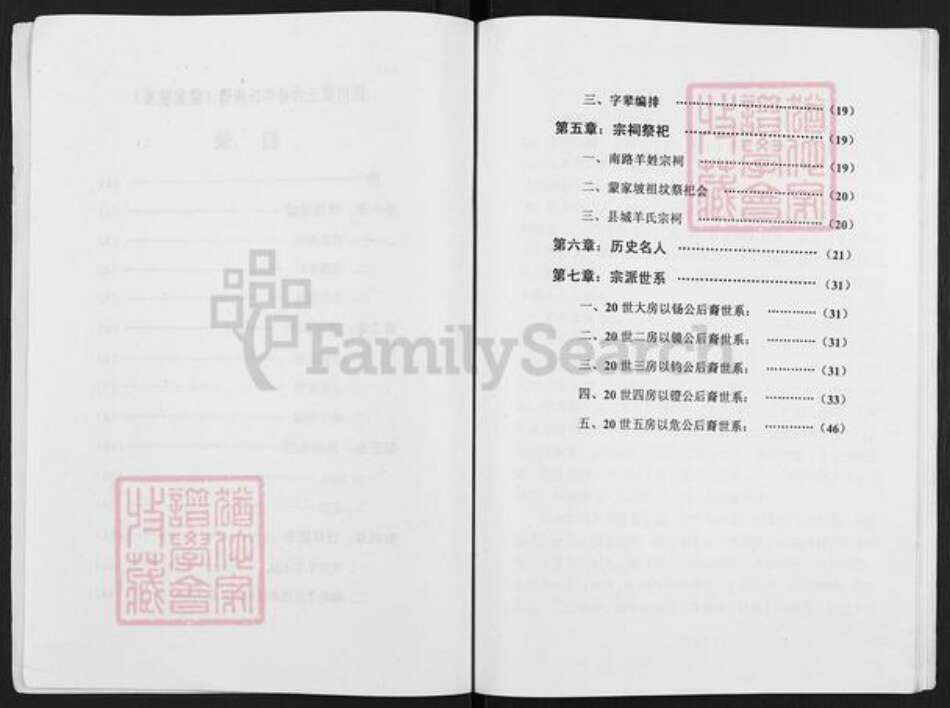 三、字辈编排 ………………………（19）
第五章：宗祠祭祀 ………………………（19）
一、南路羊姓宗祠 ………………………（19）
二、蒙家坡祖坟祭祀会 ………………………（20）
三、县城羊氏宗祠 ………………………（20）
第六章：历史名人 ………………………（21）
第七章：宗派世系 ………………………（31）
一、20世大房以钖公后裔世系： …………（31）
二、20世二房以镜公后裔世系： …………（31）
三、20世三房以钧公后裔世系： …………（31）
四、20世四房以镫公后裔世系： …………（33）
五、20世五房以危公后裔世系： …………（46）
FamilySearch